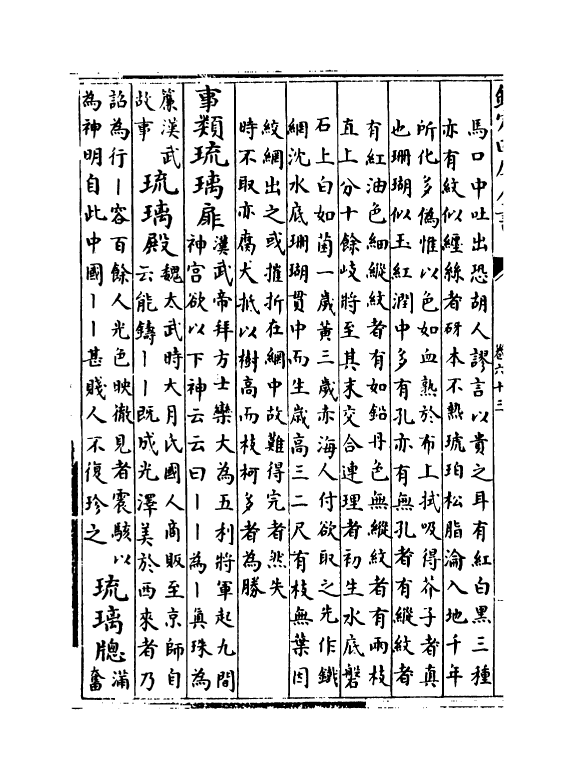 欽定四庫全書
卷六十三
馬口中吐出恐胡人謬言以貴之耳有紅白黑三種
亦有紋似纏絲者砑本不熱琥珀松脂淪入地千年
所化多偽惟以色如血熱於布上拭吸得芥子者真
也珊瑚似玉紅潤中多有孔亦有無孔者有縱紋者
有紅油色細縱紋者有如鉛丹色無縱紋者有兩枝
直上分十餘岐將至其末交合連理者初生水底磐
石上白如菌一歲黃三歲赤海人付欲取之先作鐵
網沈水底珊瑚貫中而生歲高三二尺有枝無葉因
絞網出之或摧折在網中故難得完者然失
時不取亦腐大抵以樹高而枝柯多者為勝
事類琉璃扉
漢武帝拜方士欒大為五利將軍起九間
神宫欲以下神云云曰丨丨為丨真珠為
簾漢武
故事
琉璃殿
魏太武時大月氏國人商販至京師自
云能鑄丨丨既成光澤美於西來者乃
詔為行丨容百餘人光色映徹見者震駭以
為神明自此中國丨丨甚賤人不復珍之
琉璃牕
滿
奮